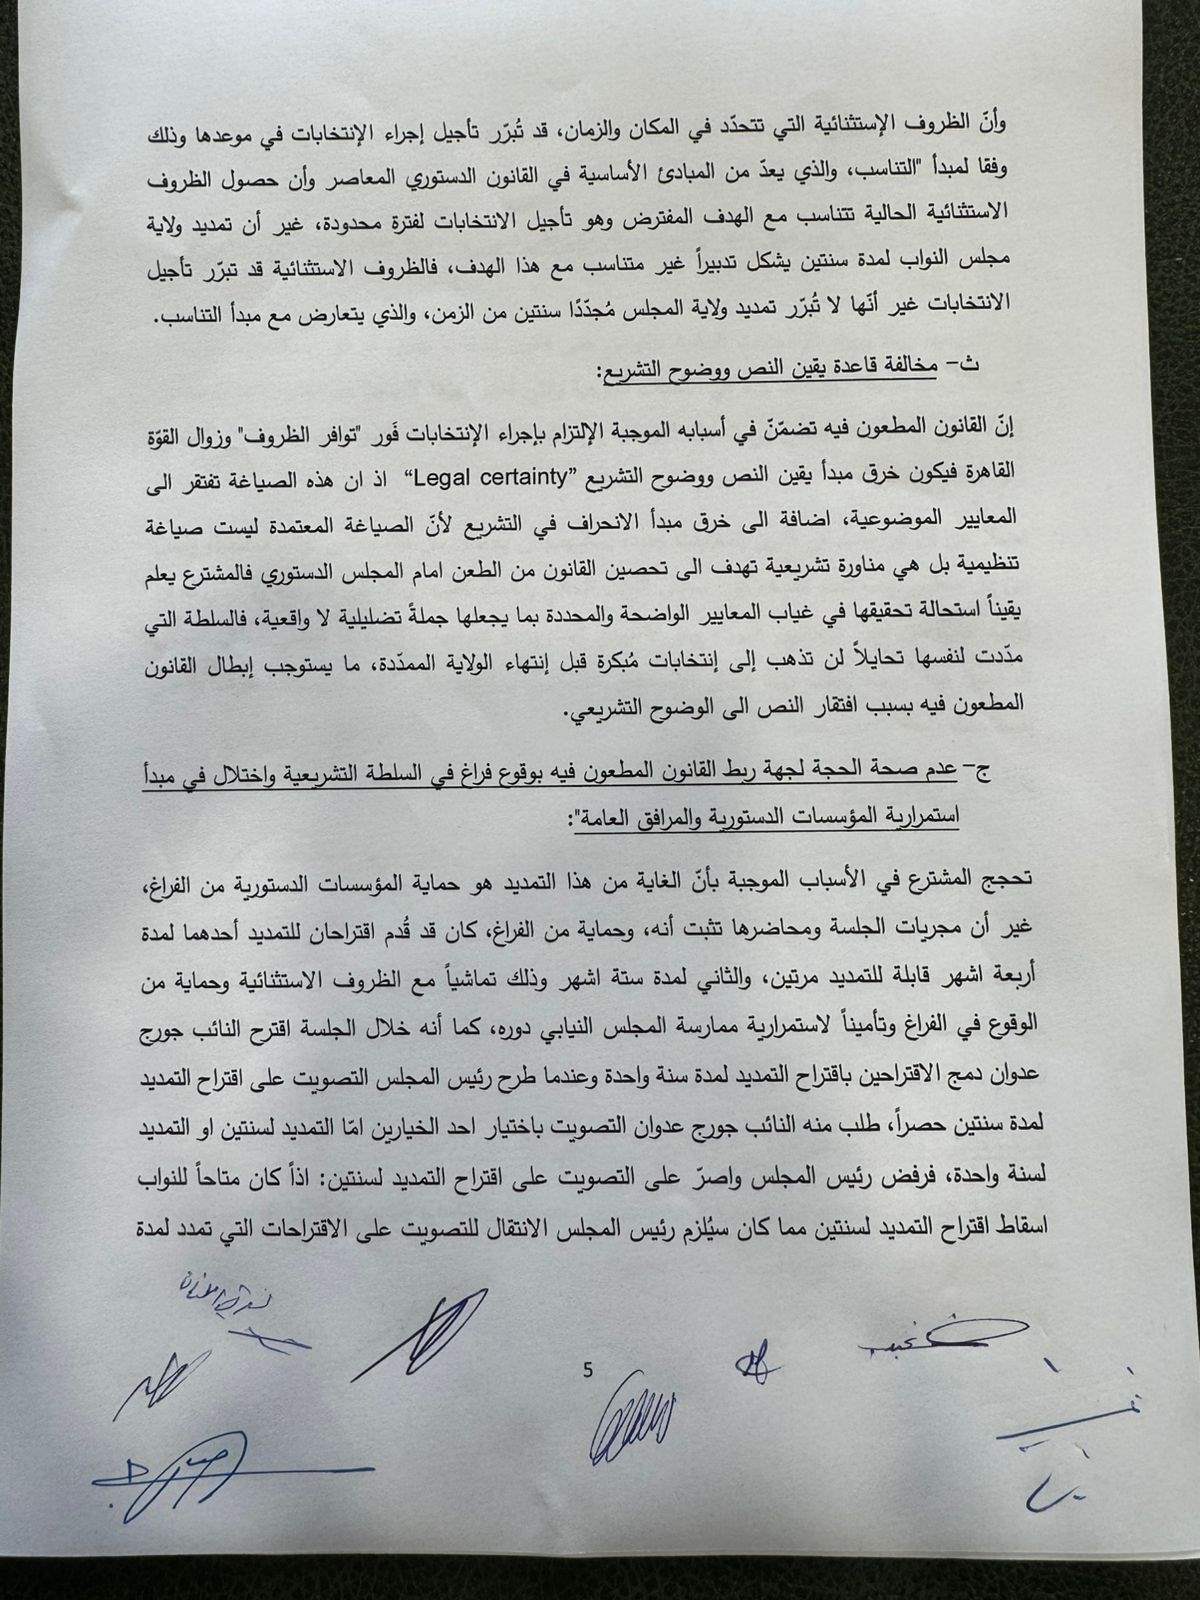 وأنّ الظروف الإستثنائية التي تتحدّد في المكان والزمان، قد تُبرّر تأجيل إجراء الإنتخابات في موعدها وذلك
وفقا لمبدأ "التناسب، والذي يعدّ من المبادئ الأساسية في القانون الدستوري المعاصر وأن حصول الظروف
الاستثنائية الحالية تتناسب مع الهدف المفترض وهو تأجيل الانتخابات لفترة محدودة، غير أن تمديد ولاية
مجلس النواب لمدة سنتين يشكل تدبيراً غير متناسب مع هذا الهدف، فالظروف الاستثنائية قد تبرّر تأجيل
الانتخابات غير أنّها لا تُبرّر تمديد ولاية المجلس مُجدّدًا سنتين من الزمن، والذي يتعارض مع مبدأ التناسب.
ث- مخالفة قاعدة يقين النص ووضوح التشريع:
إنّ القانون المطعون فيه تضمّنّ في أسبابه الموجبة الإلتزام بإجراء الإنتخابات فَور "توافر الظروف" وزوال القوّة
القاهرة فيكون خرق مبدأ يقين النص ووضوح التشريع “Legal certainty” اذ ان هذه الصياغة تفتقر الى
المعايير الموضوعية، اضافة الى خرق مبدأ الانحراف في التشريع لأنّ الصياغة المعتمدة ليست صياغة
تنظيمية بل هي مناورة تشريعية تهدف الى تحصين القانون من الطعن امام المجلس الدستوري فالمشترع يعلم
يقيناً استحالة تحقيقها في غياب المعايير الواضحة والمحددة بما يجعلها جملةً تضليلية لا واقعية، فالسلطة التي
مدّدت لنفسها تحايلاً لن تذهب إلى إنتخابات مُبكرة قبل إنتهاء الولاية الممدّدة، ما يستوجب إبطال القانون
المطعون فيه بسبب افتقار النص الى الوضوح التشريعي.
ج- عدم صحة الحجة لجهة ربط القانون المطعون فيه بوقوع فراغ في السلطة التشريعية واختلال في مبدأ
استمرارية المؤسسات الدستورية والمرافق العامة":
تحجج المشترع في الأسباب الموجبة بأنّ الغاية من هذا التمديد هو حماية المؤسسات الدستورية من الفراغ،
غير أن مجريات الجلسة ومحاضرها تثبت أنه، وحماية من الفراغ، كان قد قُدم اقتراحان للتمديد أحدهما لمدة
أربعة اشهر قابلة للتمديد مرتين، والثاني لمدة ستة اشهر وذلك تماشياً مع الظروف الاستثنائية وحماية من
الوقوع في الفراغ وتأميناً لاستمرارية ممارسة المجلس النيابي دوره، كما أنه خلال الجلسة اقترح النائب جورج
عدوان دمج الاقتراحين باقتراح التمديد لمدة سنة واحدة وعندما طرح رئيس المجلس التصويت على اقتراح التمديد
لمدة سنتين حصراً، طلب منه النائب جورج عدوان التصويت باختيار احد الخيارين امّا التمديد لسنتين او التمديد
لسنة واحدة، فرفض رئيس المجلس واصرّ على التصويت على اقتراح التمديد لسنتين: اذاً كان متاحاً للنواب
اسقاط اقتراح التمديد لسنتين مما كان سيُلزم رئيس المجلس الانتقال للتصويت على الاقتراحات التي تمدد لمدة
5